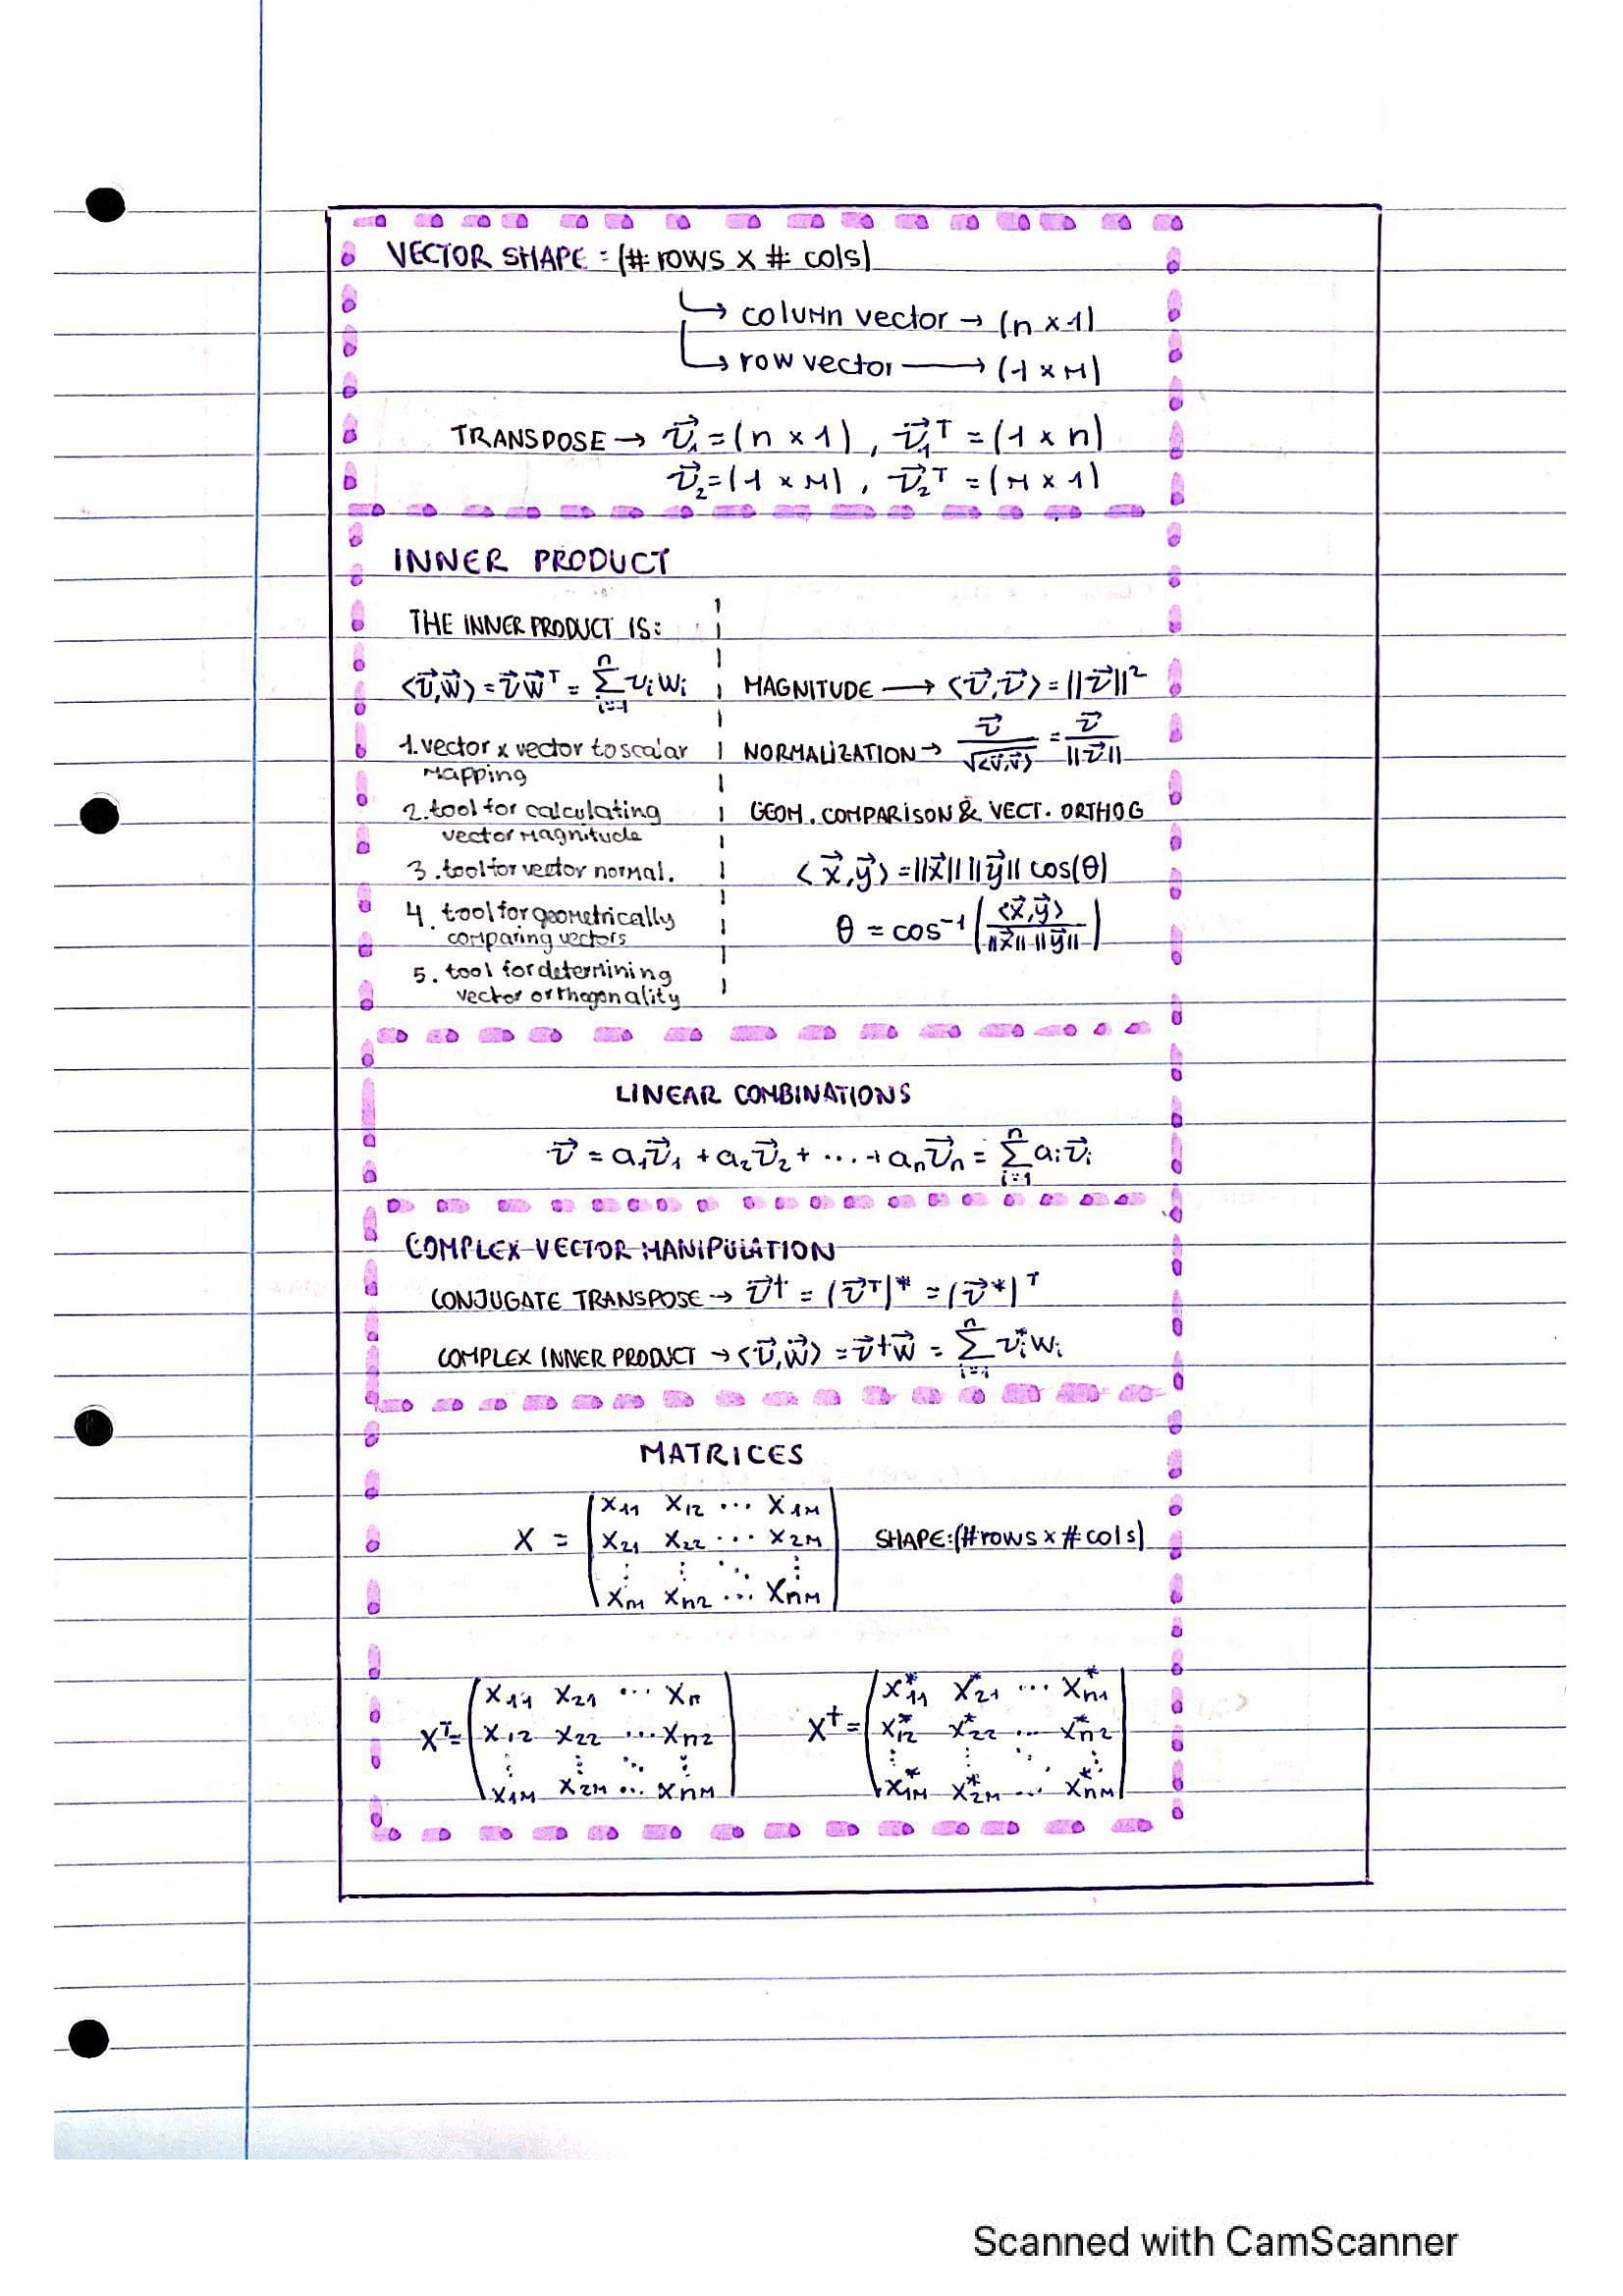 VECTOR SHAPE : (# rows x # cols)
↳ column vector → (n x 1)
↳ row vector → (1 x m)
TRANSPOSE → v⃗₁ = (n x 1) , v⃗₁ᵀ = (1 x n)
v⃗₂ = (1 x m) , v⃗₂ᵀ = (m x 1)
INNER PRODUCT
THE INNER PRODUCT IS:
⟨v⃗,w⃗⟩ = v⃗w⃗ᵀ = Σⁿᵢ₌₁ vᵢwᵢ
1. vector x vector to scalar
mapping
2. tool for calculating
vector magnitude
3. tool for vector normal.
4. tool for geometrically
comparing vectors
5. tool for determining
vector orthogonality
MAGNITUDE → ⟨v⃗,v⃗⟩ = ||v⃗||²
NORMALIZATION → v⃗/√⟨v⃗,v⃗⟩ = v⃗/||v⃗||
GEOM. COMPARISON & VECT. ORTHOG
⟨x⃗,y⃗⟩ = ||x⃗|| ||y⃗|| cos(θ)
θ = cos⁻¹(⟨x⃗,y⃗⟩/||x⃗|| ||y⃗||)
LINEAR COMBINATIONS
v⃗ = a₁v⃗₁ + a₂v⃗₂ + ... + aₙv⃗ₙ = Σⁿᵢ₌₁ aᵢv⃗ᵢ
COMPLEX VECTOR MANIPULATION
CONJUGATE TRANSPOSE → v⃗† = (v⃗ᵀ)* = (v⃗*)ᵀ
COMPLEX INNER PRODUCT → ⟨v⃗,w⃗⟩ = v⃗†w⃗ = Σⁿᵢ₌₁ vᵢ*wᵢ
MATRICES
x₁₁ x₁₂ ... x₁ₘ
X = x₂₁ x₂₂ ... x₂ₘ SHAPE: (# rows x # cols)
⋮ ⋮ ⋱ ⋮
xₙ₁ xₙ₂ ... xₙₘ
x₁₁ x₂₁ ... xₙ₁
Xᵀ = x₁₂ x₂₂ ... xₙ₂
⋮ ⋮ ⋱ ⋮
x₁ₘ x₂ₘ ... xₙₘ
x*₁₁ x*₂₁ ... x*ₙ₁
X† = x*₁₂ x*₂₂ ... x*ₙ₂
⋮ ⋮ ⋱ ⋮
x*₁ₘ x*₂ₘ ... x*ₙₘ
Scanned with CamScanner